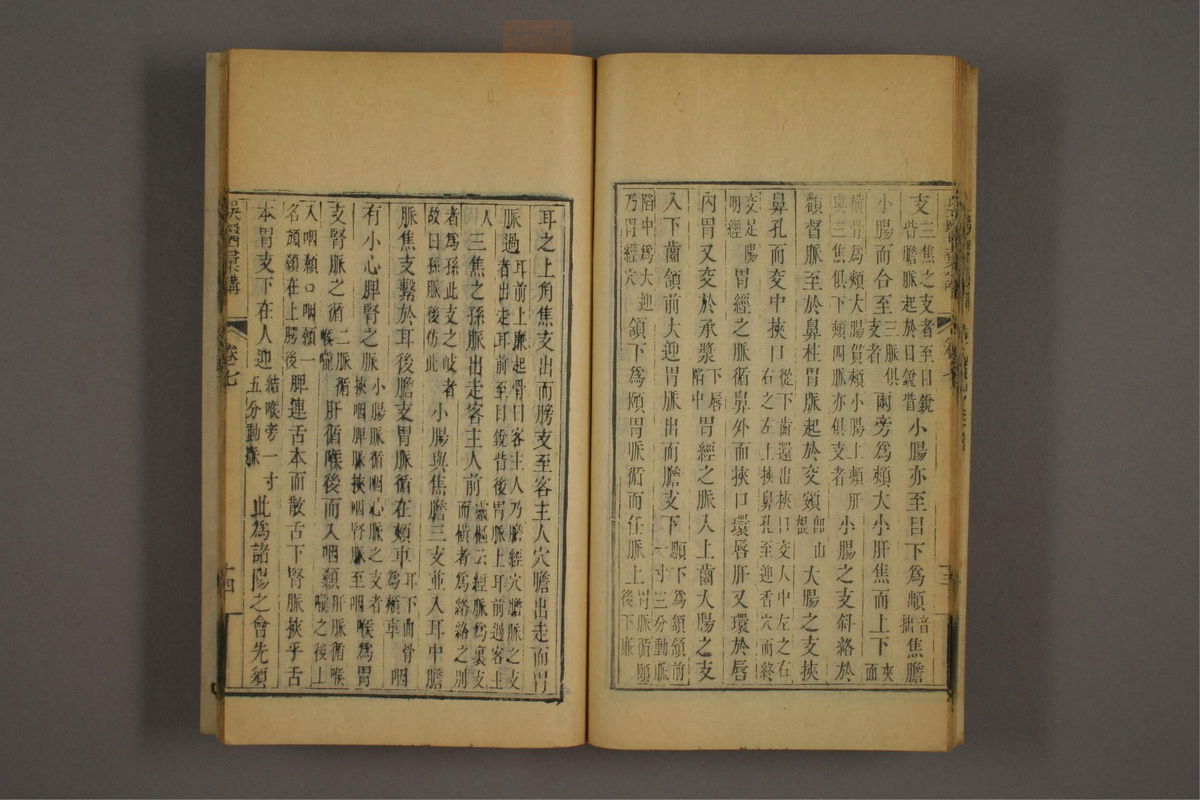 支三焦之支者至目銳眥膽脈起於目銳眥小腸亦至目下爲䪼音拙焦膽
小腸而合至三脈俱支者兩旁爲頰大小肝焦而上下夾面
橫骨爲頰大腸貫頰小腸上頰肝與三焦俱下頰四脈亦俱支者小腸之支斜絡於
顴督脈至於鼻柱胃脈起於交頞卽山根大腸之支挾
鼻孔而交中挾口從下齒還出挾口交人中左之右右之左上挾鼻孔至迎香穴而終
交足陽明經胃經之脈循鼻外而挾口環唇肝又環於唇
內胃又交於承漿下唇陷中胃經之脈入上齒大腸之支
入下齒頷前大迎胃脈出而膽支下下爲頷頷前一寸三分動脈
陷中爲大迎乃胃經穴頷下爲頤胃脈循而任脈上胃脈循頤後下廉
耳之上角焦支出而膀支至客主人穴膽出走而胃
脈過耳前上廉起骨曰客主人乃膽經穴膽脈之支者出走耳前至目銳眥後胃脈上耳前過客主
人三焦之孫脈出走客主人前靈樞云經脈爲裏支而橫者爲絡絡之別
者爲孫此支之岐者故曰孫脈後仿此小腸與焦膽三支並入耳中膽
脈焦支繫於耳後膽支胃脈循在頰車耳下曲骨爲頰車咽
有小心脾腎之脈小腸脈循咽心脈之支者挾咽脾脈挾咽腎脈至咽喉爲胃
支腎脈之循二脈循喉嚨肝循喉後而入咽顙肝脈循喉嚨之後上
入咽顙口咽顙一名頏顙在上腭後脾連舌本而散舌下腎脈挾乎舌
本胃支下在人迎結喉旁一寸五分動脈此爲諸陽之會先須
吳醫彙講 卷七 十四